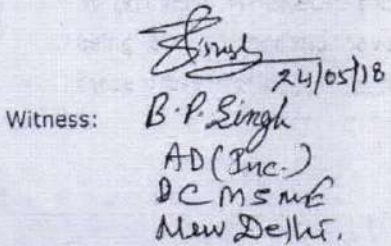 Singh
24/05/18
Witness: B.P. Singh
AD (Inc.)
DC MSME
New Delhi.